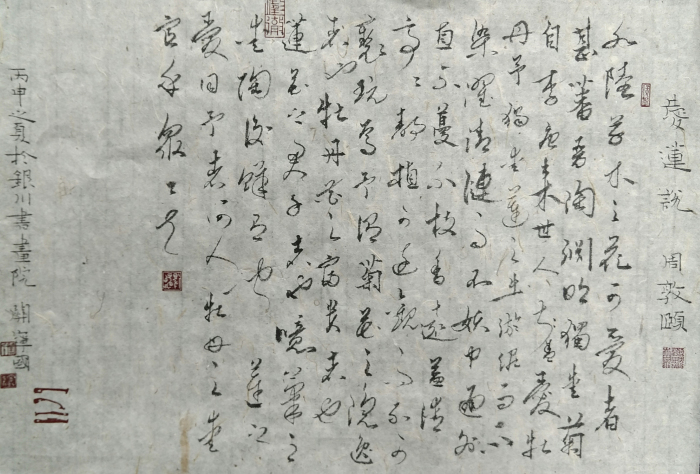 愛蓮說 周敦頤
水陸草木之花可愛者
甚蕃晉陶淵明獨愛菊
自李唐来世人甚愛牡
丹予獨愛蓮之出淤泥而不
染濯清漣而不妖中通外
直不蔓不枝香遠益清
亭亭静植可遠觀而不可
褻玩焉予謂菊花之隱逸
者也牡丹花之富貴者也
蓮花之君子者也噫菊之
愛陶後鮮有也 蓮之
愛同予者何人牡丹之愛
宜乎衆矣
丙申之夏於銀川書畫院